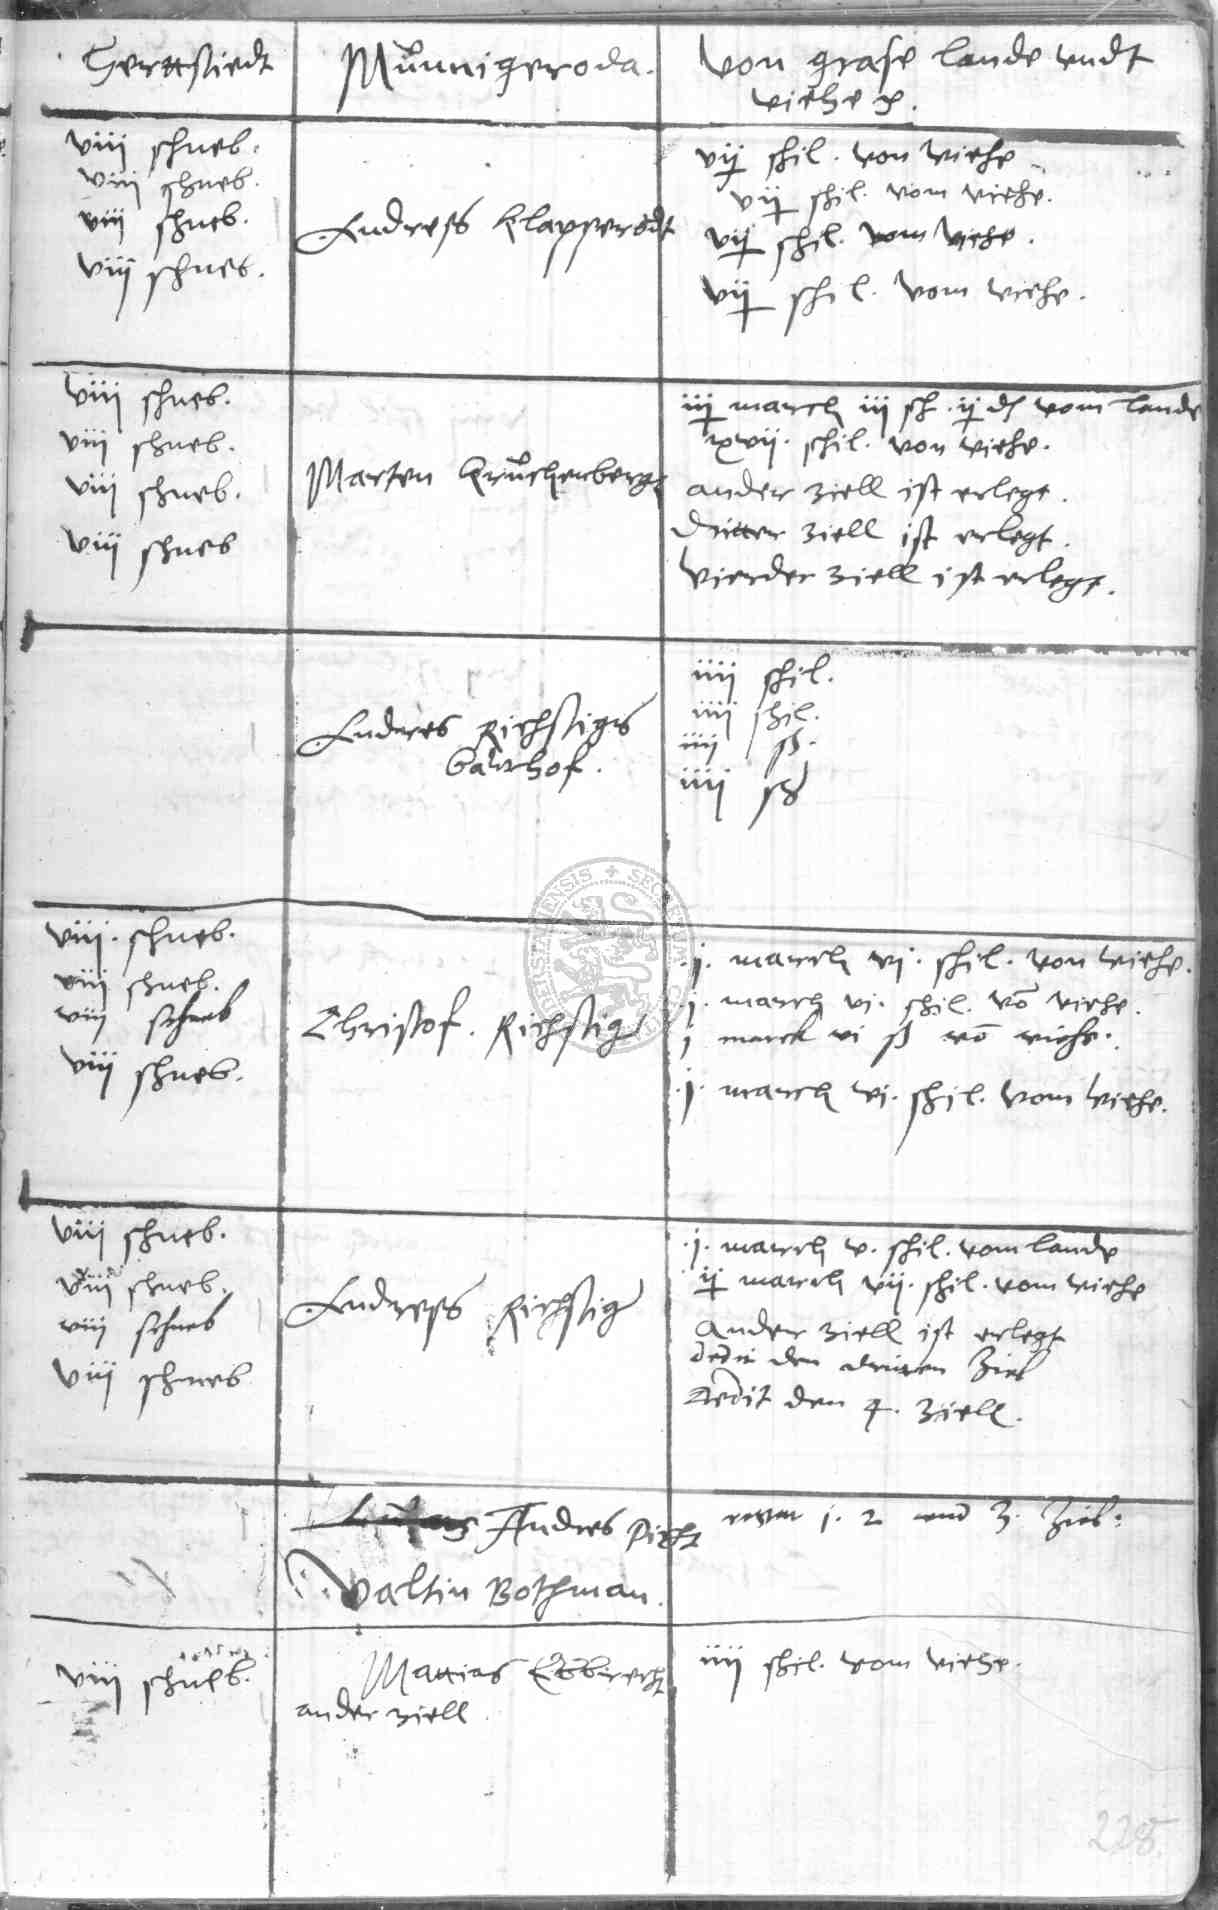 Herttstiedt
Münnigeroda.
Von grase lande vndt
viehe
viii schneb.
viii schneb.
viii schneb.
viii schneb.
Endress Klapperodt
vij schil. von viehe
vij schil. vom viehe.
vij schil. vom viehe.
vij schil. vom viehe.
viii schneb.
viii schneb.
viii schneb.
viii schneb
Marten Kruchenbergk
iij march iii sch. ij d vom lande
xvii. schil. von viehe.
ander ziell ist erlegt.
dritter ziell ist erlegt.
Vierder ziell ist erlegt.
Endres Richstigs
bawrhof.
iiij schil.
iiij schil.
iiij ß.
iiij ß
viii. schneb.
viii schneb.
viii schneb
viii schneb.
Christof. Richstig
.j. march vi. schil. von viehe.
.j. march vi. schil. vō viehe.
j marck vi ß vō viehe.
.j. march vi. schil. vom viehe.
viii schneb.
viii schneb.
viii schneb
viii schneb
Endress Richstig
.j. march v. schil. vom lande
ij march vii. schil. vom viehe
Ander ziell ist erlegt
dedit den dritten Ziel
dedit den 4. ziell.
Andres Richt
j. 2 vnd 3. Ziel.
Valtin Bothman.
viii schneb.
Mattias Ebbrecht
ander ziell
iiij schil. vom viehe.
228